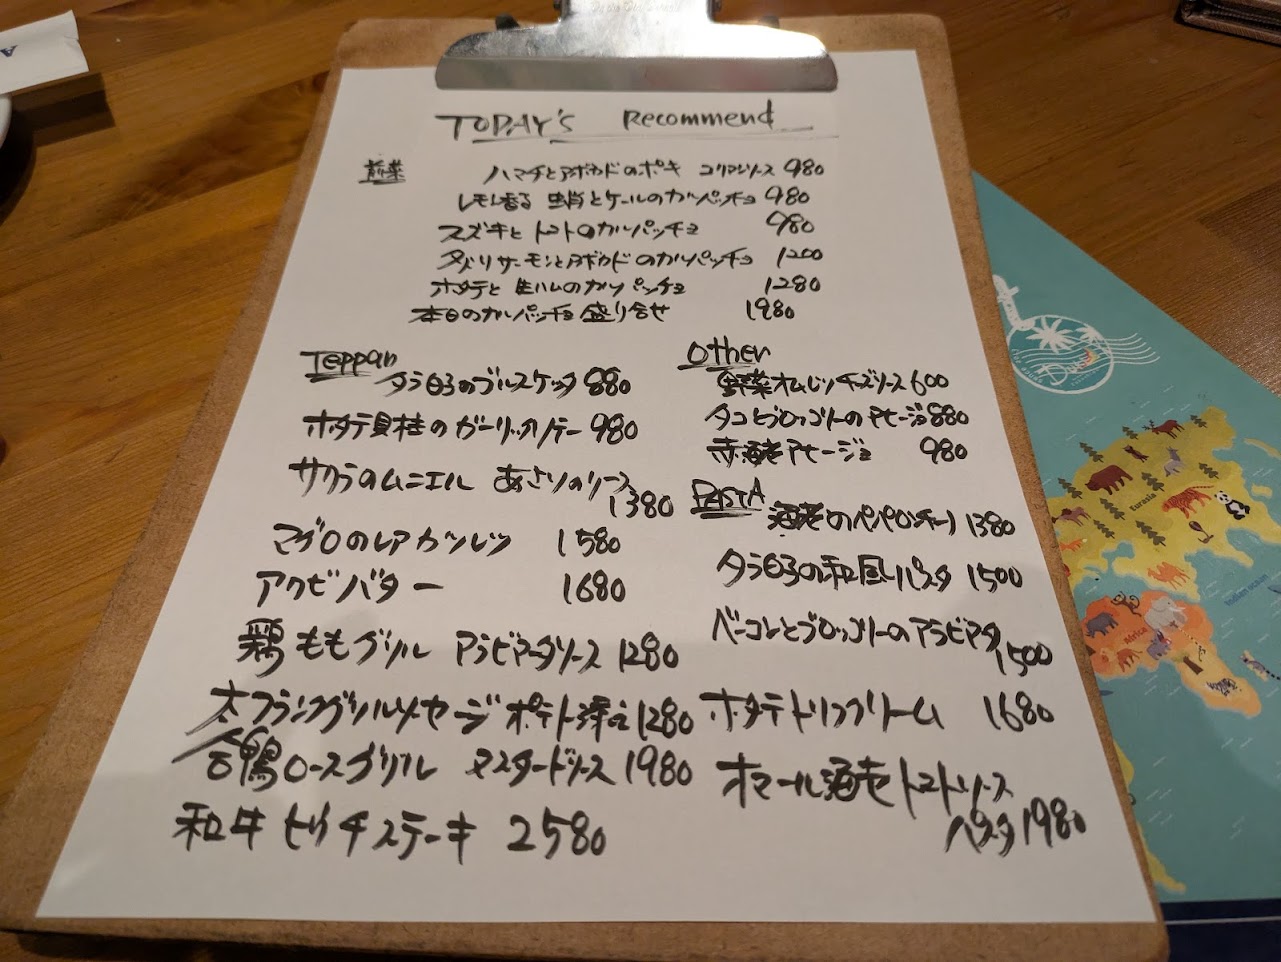 TODAY's Recommend
前菜
ハマチとアボカドのポキ コリアンソース 980
レモン香る 蛸とケールのカルパッチョ 980
スズキとトマトのカルパッチョ 980
タスマニアサーモンとアボカドのカルパッチョ 1200
ホタテと生ハムのカルパッチョ 1280
本日のカルパッチョ盛り合せ 1980
Teppan
タラ白子のブルスケッタ 880
ホタテ貝柱のガーリックソテー 980
サクラのムニエル あさりのソース
1380
マグロのレアカツレツ 1580
アワビバター 1680
鶏ももグリル アラビアータソース 1280
太フランクグリルソーセージ ポテト添え 1280
合鴨ロースグリル マスタードソース 1980
和牛 ステーキ 2580
Other
野菜オムレツチーズソース 600
タコとブロッコリーのアヒージョ 880
赤海老アヒージョ 980
PASTA
海老のペペロンチーノ 1380
タラ白子の和風パスタ 1500
ベーコンとブロッコリーのアラビアータ
1500
ホタテトリュフクリーム 1680
オマール海老トマトソース
パスタ 1980
Eurasia
Africa
Indian ocean